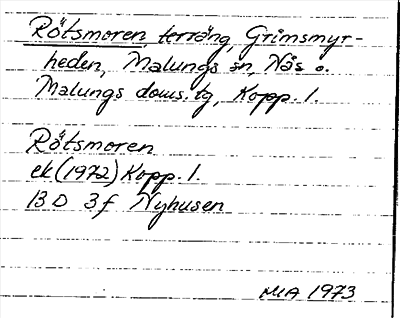 Rötsmoren, terräng, Grimsmyr-
heden, Malungs sn, Nås o.
Malungs doms. tg, Kopp. l.
Rötsmoren
ek (1972) Kopp. l.
13 D 3f Nyhusen
MIA 1973